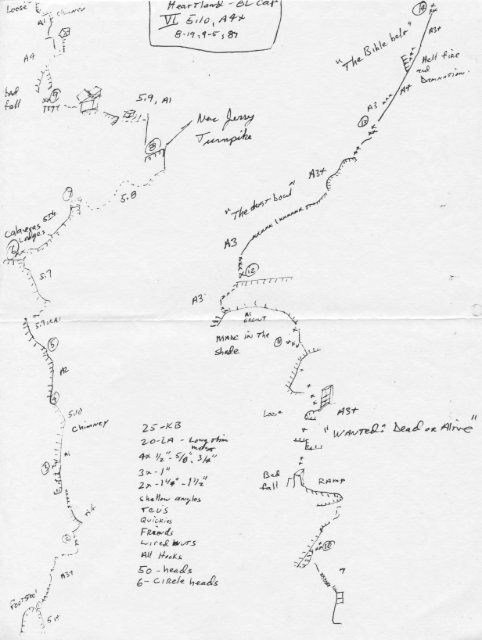 Heartland - EL Cap
VI 5.10, A4+
8-19, 9-5, 87
Loose
A1 chimney
A4
bad
fall
5.9, A1
New Jersy
Turnpike
8
7
5.8
6
Ledges
5.7
5
A2
5.10
chimney
A3+
14
A3+
"The Bible belt"
Hell fire
and
Damnation
A4
A3
13
A3+
"The dust bowl"
A3
12
A3
A1
MADE in The
shade
Loose
A3+
"WANTED: Dead or Alive"
Bad
fall
RAMP
10
25 - KB
20 - LA - Long thin
4x 1/2" - 5/8", 3/4"
3x - 1"
2x - 1 1/4" - 1 1/2"
shallow angles
TCU's
Quickies
Friends
wired nuts
All Hooks
50 - heads
6 - Circle heads